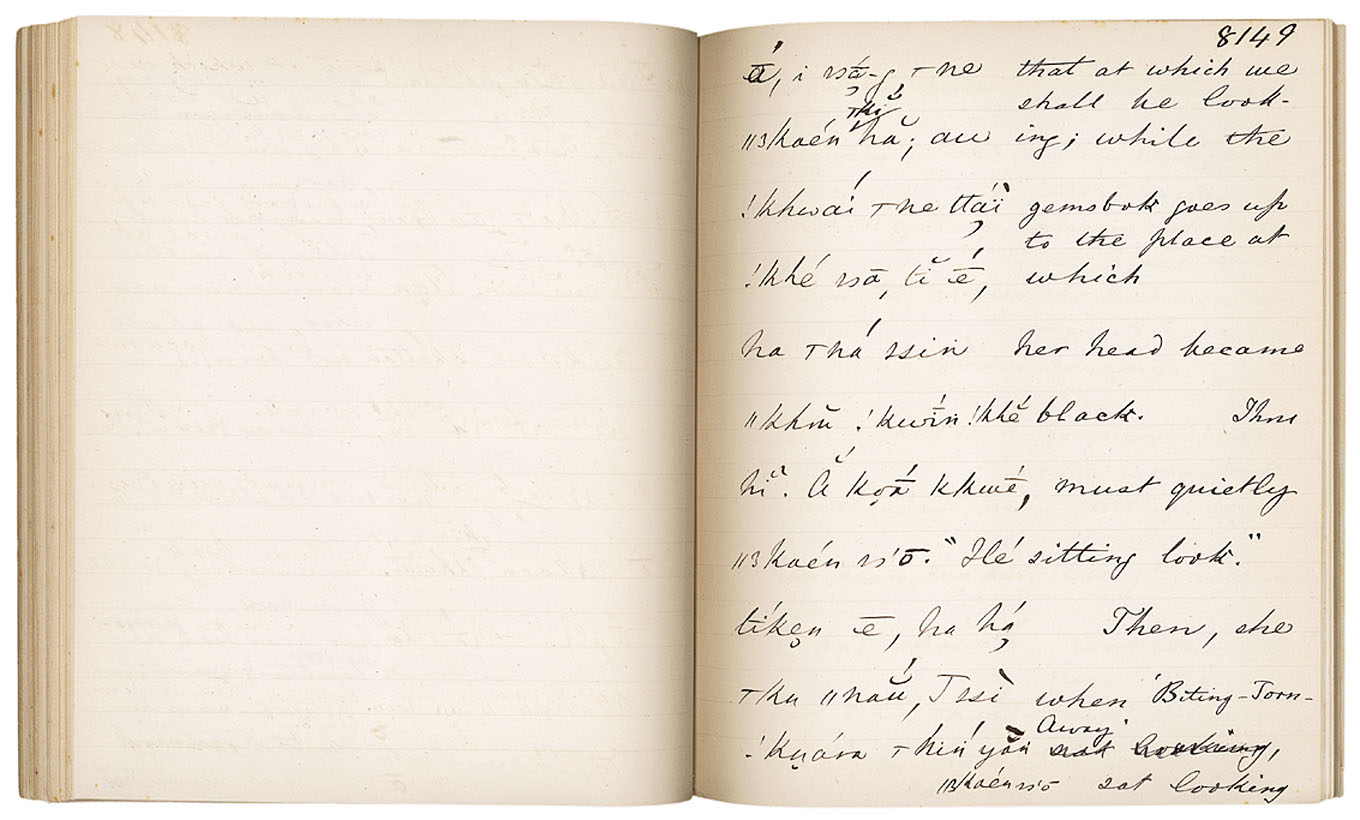 8149
é, i ssā-g ⊤ne that at which we
shall be look-
ǁɜkaén hă; au ing; while the
!khwaí ⊤ne ttáï gemsbok goes up
to the place at
!khé ssā, tĭ ē, which
ha ⊤ná ssin her head became
ǁkhū !kwīn !khĕ black. Thou
hĭ. Ă kọā́ kkwḗ, must quietly
ǁɜkaén ss'ō." Hé sitting look."
tíkẹn ē, ha hạ́ Then, she
⊤ku ǁnăŭ, Tssì when 'Biting-Torn-
Away'
!kụára ⊤kiń yăń sat looking,
ǁɜkaén ss'ō sat looking